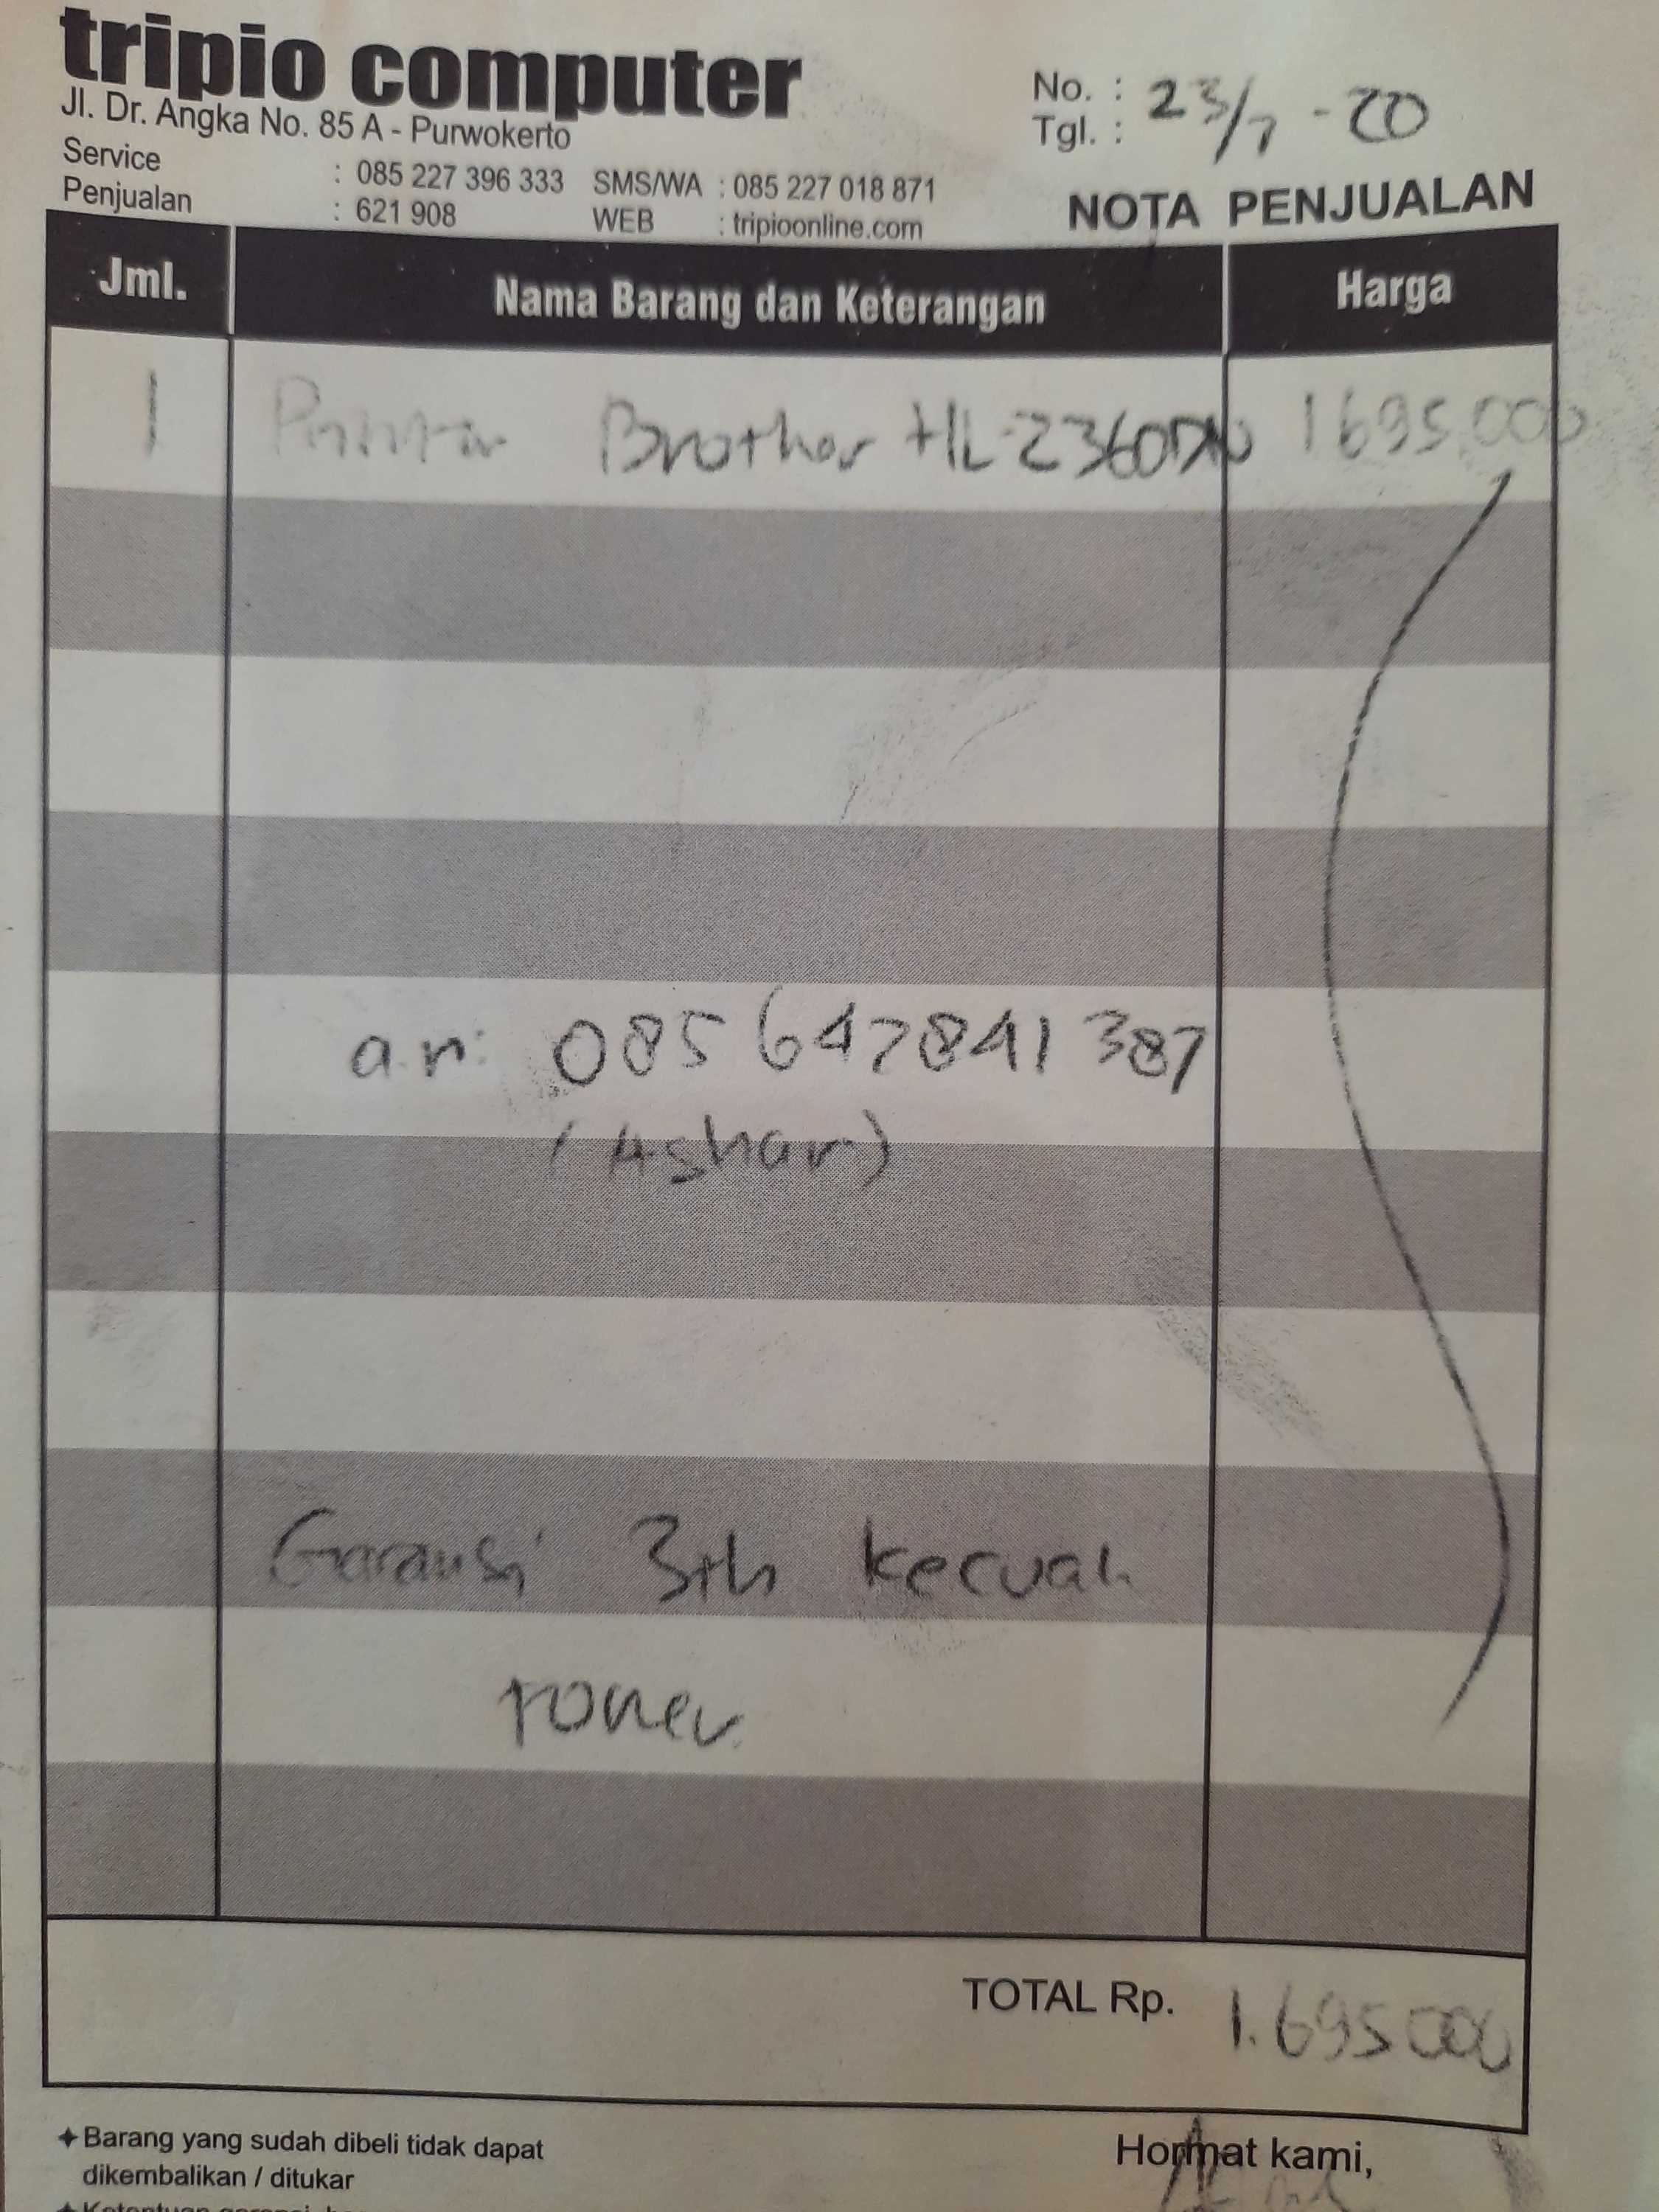 tripio computer
Jl. Dr. Angka No. 85 A - Purwokerto
Service : 085 227 396 333 SMS/WA : 085 227 018 871
Penjualan : 621 908 WEB : tripioonline.com
No. :
Tgl. : 23/7 - 20
NOTA PENJUALAN
Jml. Nama Barang dan Keterangan Harga
1 Printer Brother HL-2360DN 1695.000
a.n: 085 647841 387
(Ashar)
Garansi 3th kecuali
toner.
TOTAL Rp. 1.695000
✦ Barang yang sudah dibeli tidak dapat
dikembalikan / ditukar
Hormat kami,
✦ Ketentuan garansi